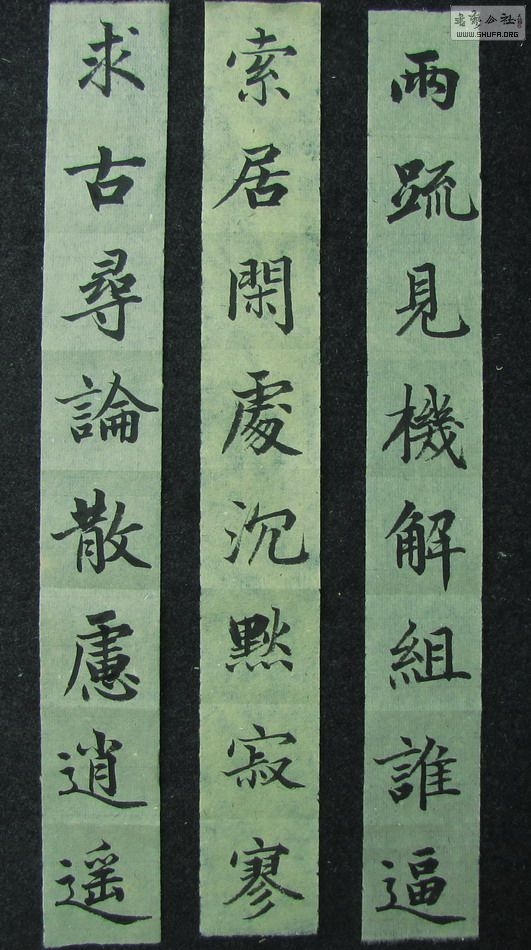 兩疏見機解組誰逼
索居閑處沉默寂寥
求古尋論散慮逍遥
書藝公社
WWW.SHUFA.ORG